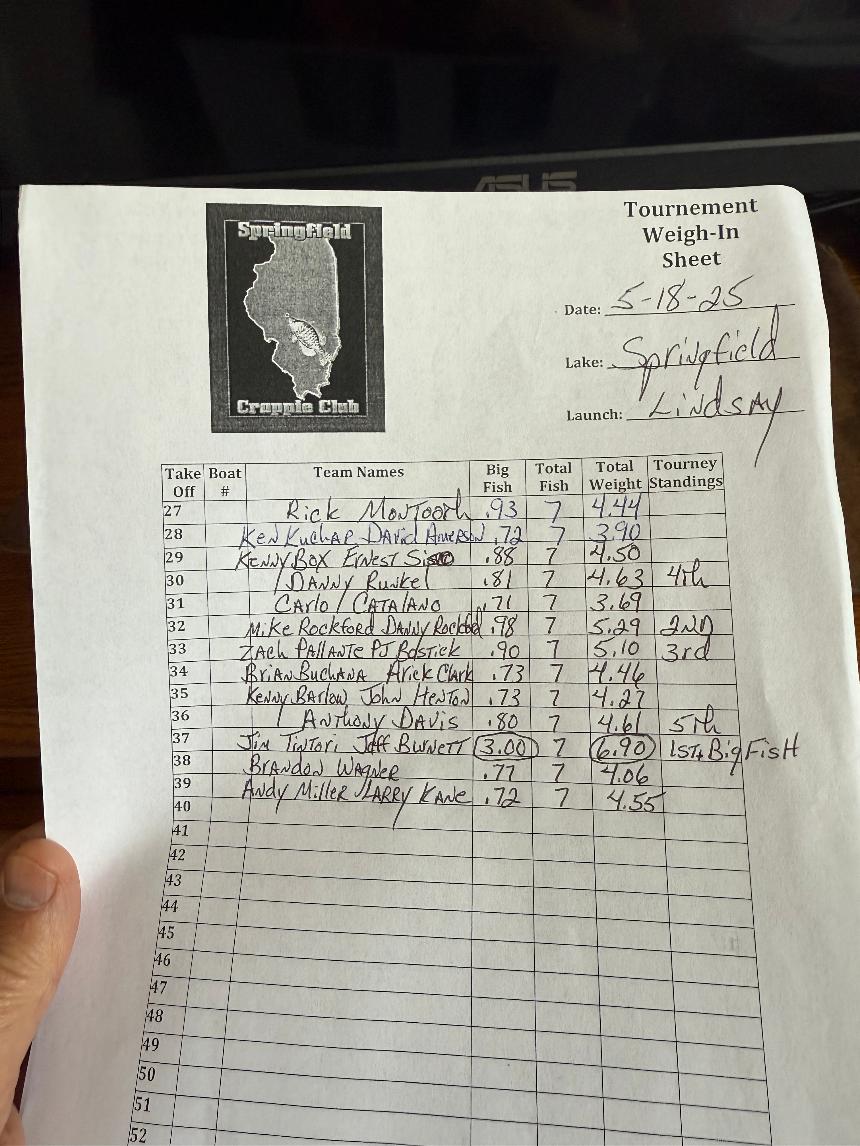 ASUS
Springfield
Crappie Club
Tournement
Weigh-In
Sheet
Date: 5-18-25
Lake: Springfield
Launch: LINDSAY
Take Off Boat # Team Names Big Fish Total Fish Total Weight Tourney Standings
27 Rick MONTOOTH .93 7 4.44
28 KEN KUCHAR DAVID AMERSON .72 7 3.90
29 KENNY BOX ERNEST .88 7 4.50
30 / DANNY RUNKEL .81 7 4.63 4th
31 CARLO / CATALANO .71 7 3.69
32 Mike Rockford DANNY Rockford .98 7 5.29 2ND
33 ZACH PALLANTE PJ BOSTICK .90 7 5.10 3rd
34 BRIAN BUCHANA Arick Clark .73 7 4.46
35 KENNY BARLOW JOHN HENTON .73 7 4.27
36 / ANTHONY DAVIS .80 7 4.61 5th
37 JIM TINTORI Jeff BURNETT 3.00 7 6.90 1ST+ Big FisH
38 BRANDON WAGNER .77 7 4.06
39 Andy Miller / LARRY KANE .72 7 4.55
40
41
42
43
44
45
46
47
48
49
50
51
52